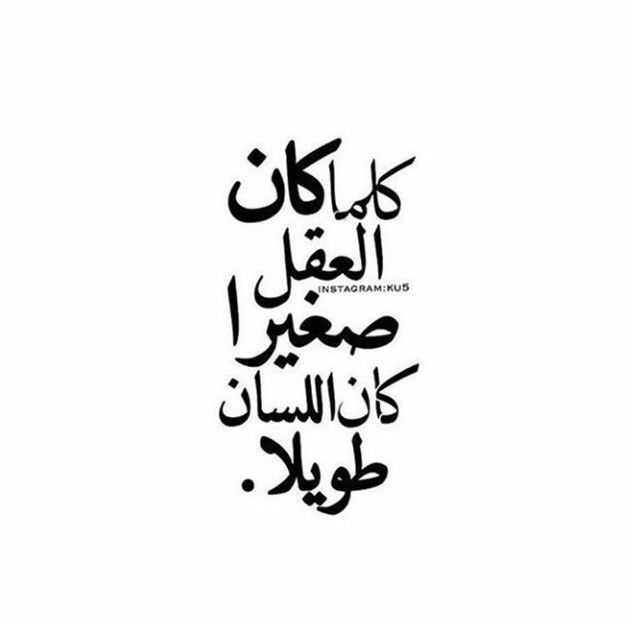 كلما كان
العقل
INSTAGRAM:KU5
صغيرا
كان اللسان
طويلا.